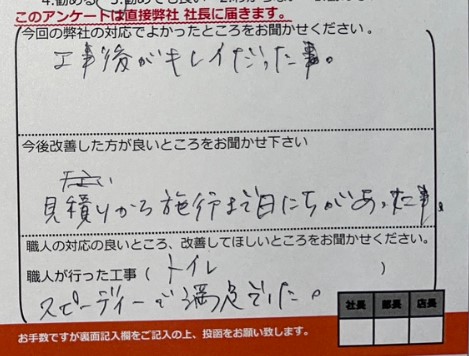 4.勧める 5.勧めても良い
このアンケートは直接弊社 社長に届きます。
今回の弊社の対応でよかったところをお聞かせください。
工事後がキレイだった事。
今後改善した方が良いところをお聞かせ下さい
見積りから施行まで日にちがあった事。
職人の対応の良いところ、改善してほしいところをお聞かせください。
職人が行った工事（ トイレ ）
スピーディーで満足でした。
社長 部長 店長
お手数ですが裏面記入欄をご記入の上、投函をお願い致します。